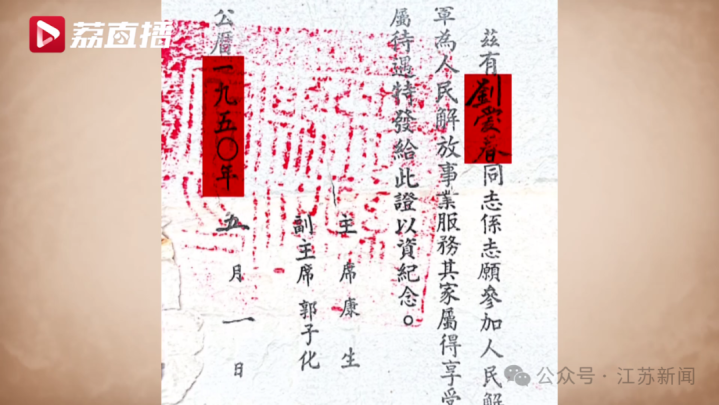 荔直播
茲有劉愛春同志係志願參加人民解
軍為人民解放事業服務其家屬得享受
屬待遇特發給此證以資紀念。
主席康生
副主席郭子化
公曆一九五〇年五月一日
公众号·江苏新闻